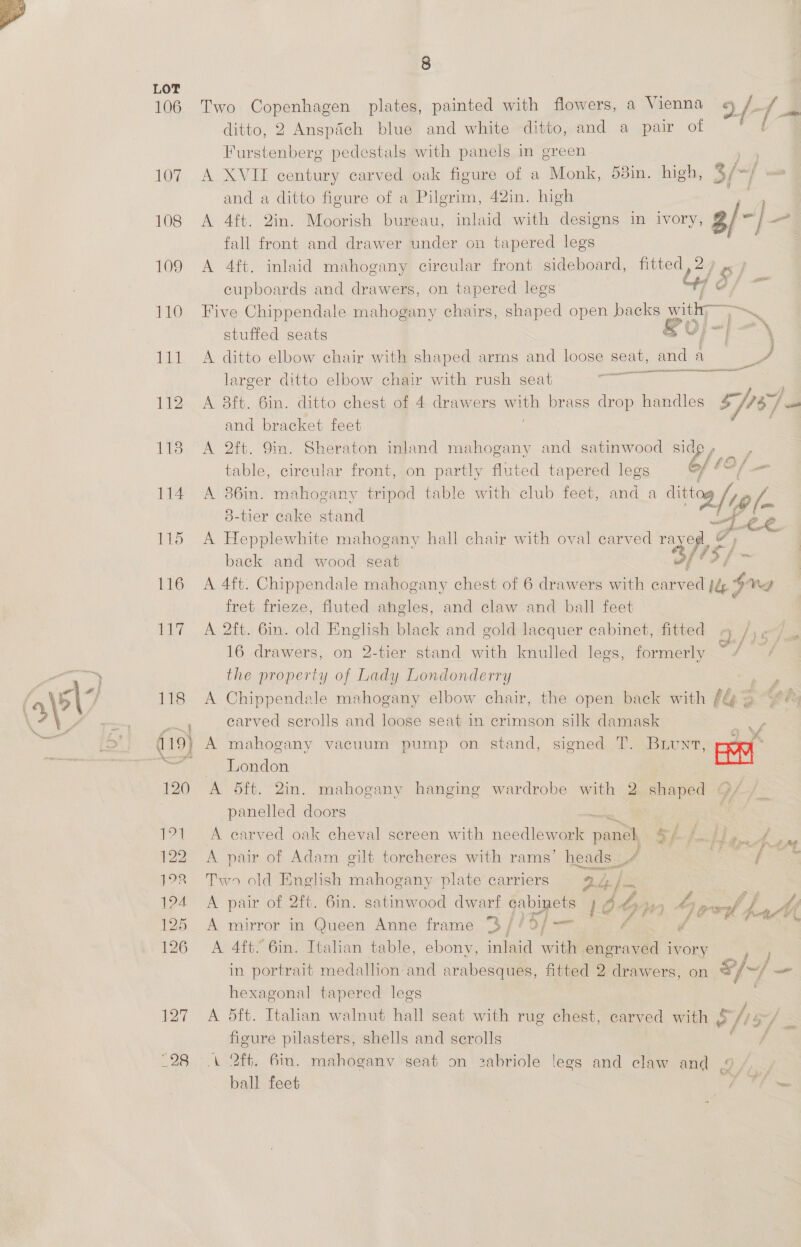 8
LOT
106 Two Copenhagen plates, painted with flowers, a Vienna 9/-/-
ditto, 2 Anspäch blue and white ditto, and a pair of
Furstenberg pedestals with panels in green
107 A XVII century carved oak figure of a Monk, 53in. high, 3/-/-
and a ditto figure of a Pilgrim, 42in. high
108 A 4ft. 2in. Moorish bureau, inlaid with designs in ivory, 2/-/-
fall front and drawer under on tapered legs
109 A 4ft. inlaid mahogany circular front sideboard, fitted, 2
cupboards and drawers, on tapered legs
110 Five Chippendale mahogany chairs, shaped open backs with
stuffed seats
111 A ditto elbow chair with shaped arms and loose seat, and a
larger ditto elbow chair with rush seat
112 A 3ft. 6in. ditto chest of 4 drawers with brass drop handles 5/15/-
and bracket feet
113 A 2ft. 9in. Sheraton inland mahogany and satinwood side
table, circular front, on partly fluted tapered legs 6/10/-
114 A 36in. mahogany tripod table with club feet, and a ditto
3-tier cake stand
115 A Hepplewhite mahogany hall chair with oval carved rayed
back and wood seat 3/15/-
116 A 4ft. Chippendale mahogany chest of 6 drawers with carved
fret frieze, fluted angles, and claw and ball feet
117 A 2ft. 6in. old English black and gold lacquer cabinet, fitted
16 drawers, on 2-tier stand with knulled legs, formerly
the property of Lady Londonderry
118 A Chippendale mahogany elbow chair, the open back with
carved scrolls and loose seat in crimson silk damask
119 A mahogany vacuum pump on stand, signed T. Blunt,
London
120 A 5ft. 2in. mahogany hanging wardrobe with 2 shaped
panelled doors
121 A carved oak cheval screen with needlework panel
122 A pair of Adam gilt torcheres with rams' heads
123 Two old English mahogany plate carriers
124 A pair of 2ft. 6in. satinwood dwarf cabinets
125 A mirror in Queen Anne frame 3/15/-
126 A 4ft. 6in. Italian table, ebony, inlaid with engraved ivory
in portrait medallion and arabesques, fitted 2 drawers, on 8/-/-
hexagonal tapered legs
127 A 5ft. Italian walnut hall seat with rug chest, carved with 5/15/-
figure pilasters, shells and scrolls
128 A 2ft. 6in. mahogany seat on cabriole legs and claw and
ball feet